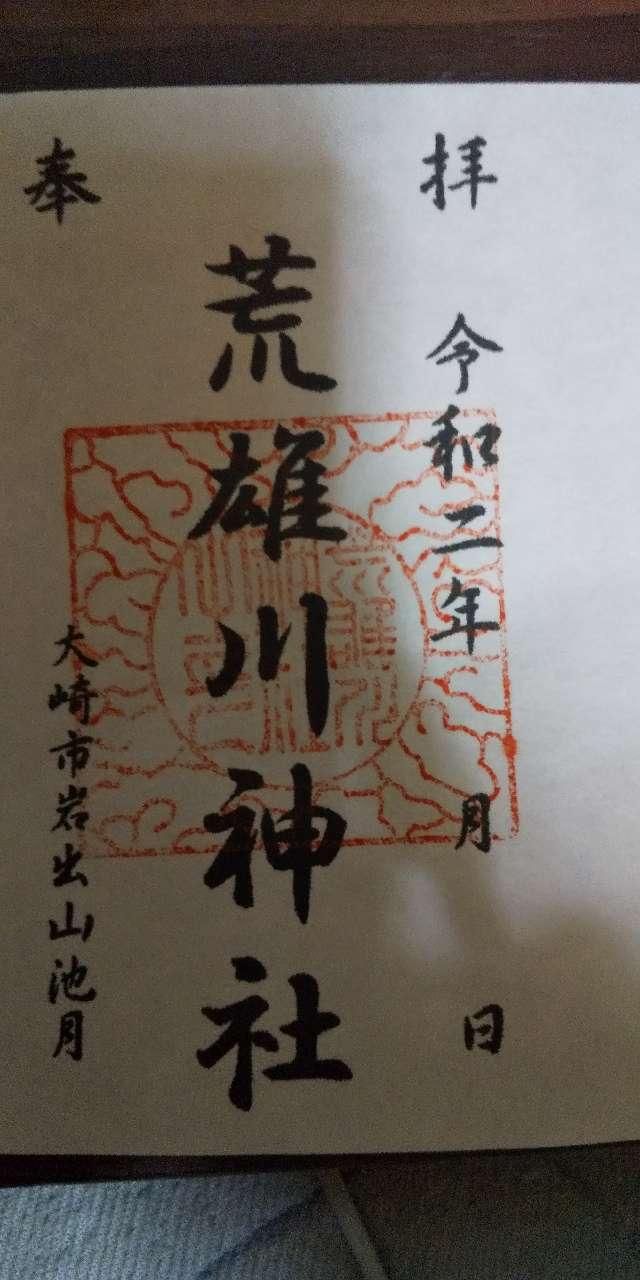 奉
拝
令和二年 月 日
荒雄川神社
大崎市岩出山池月